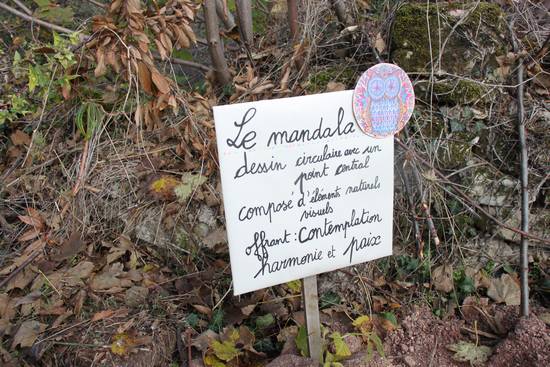 Le mandala
dessin circulaire avec un
point central
composé d'éléments naturels
visuels
offrant : Contemplation
harmonie et paix